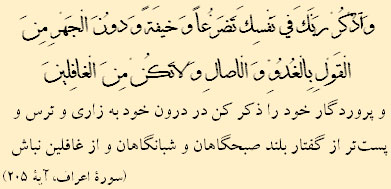 وَاذْكُرْ رَبَّكَ فِي نَفْسِكَ تَضَرُّعاً وَ خِيفَةً وَ دُونَ الْجَهْرِ مِنَ
الْقَوْلِ بِالْغُدُوِّ وَ الْآصَالِ وَ لَا تَكُنْ مِنَ الْغَافِلِينَ
و پروردگار خود را ذکر کن در درون خود به زاری و ترس و
پست‌تر از گفتار بلند صبحگاهان و شبانگاهان و از غافلین نباش
(سورهٔ اعراف، آیهٔ ۲۰۵)